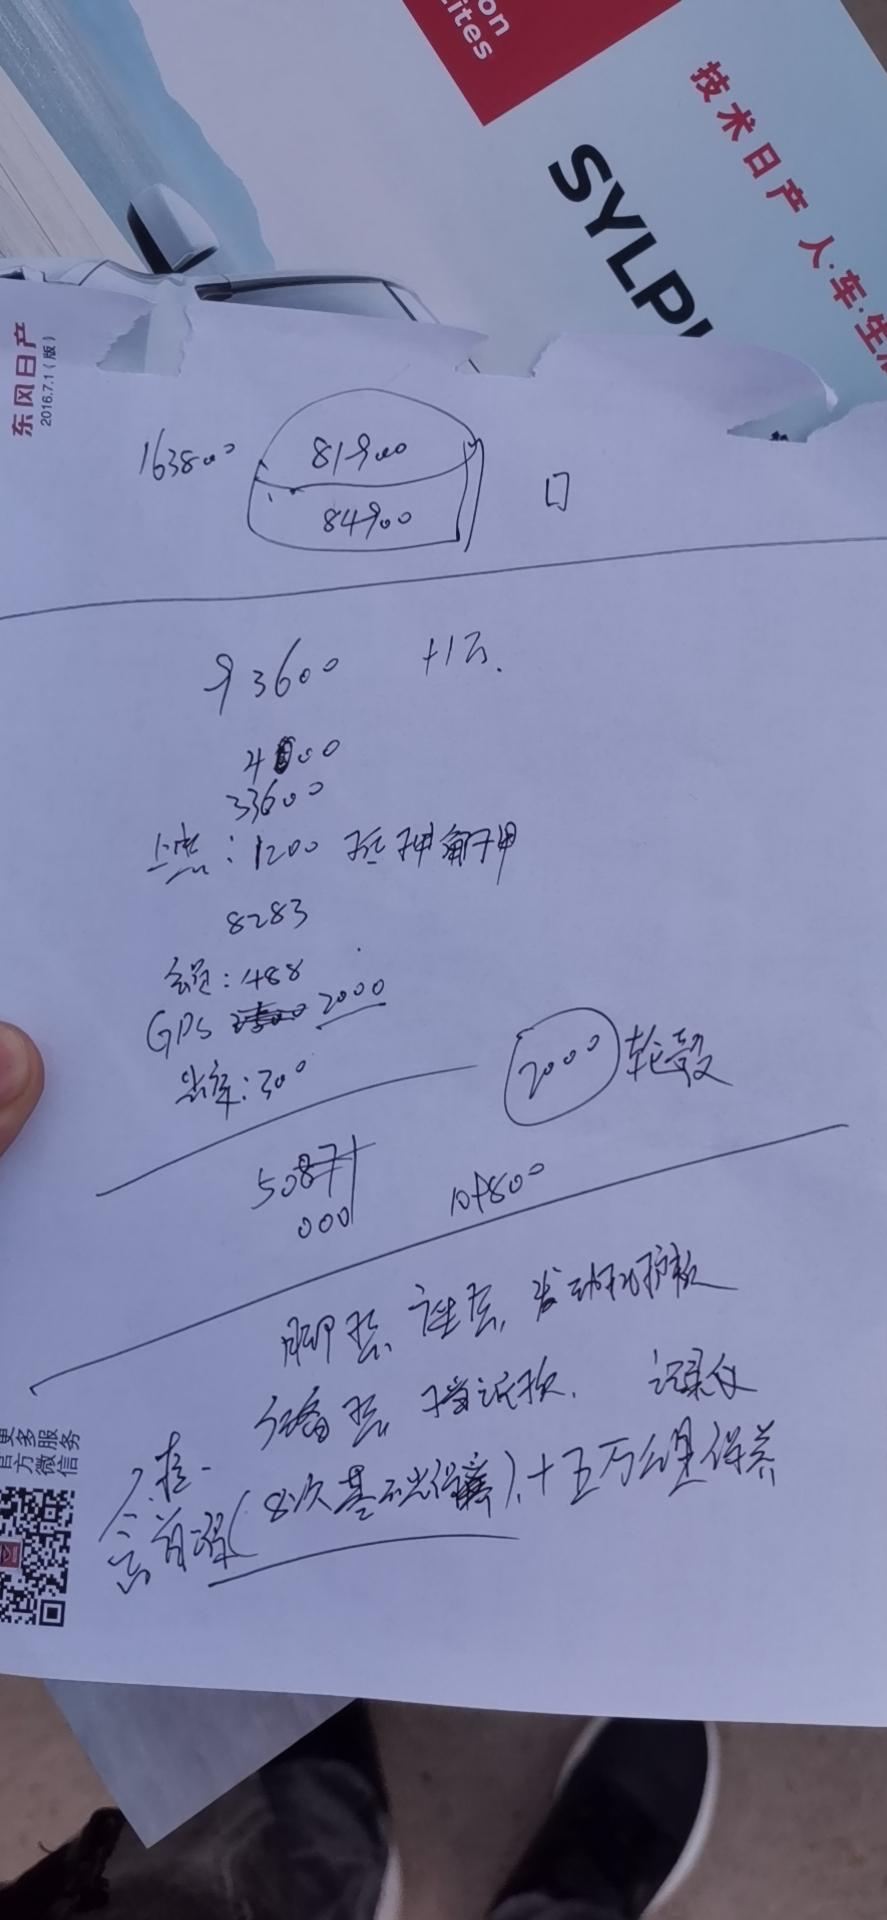 on
ites
技术日产 人·车·生
SYLPH
东风日产
2016.7.1(版)
163800
81900
84900
93600 +1万.
33600
上牌: 1200 抵押解押
8283
488
GPS 2000
出库: 300
2000 轮毂
50871
000
脚垫, 座垫, 发动机护板
后备垫, 挡泥板. 记录仪
含首保(8次基础保养)+五万公里保养
更多服务
官方微信